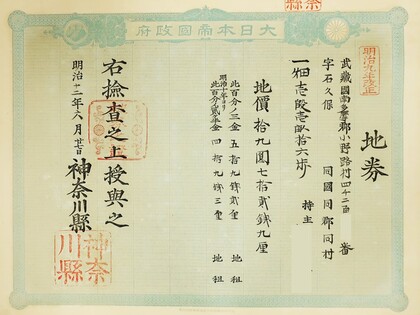 大日本帝國政府
明治九年改正
地券
武藏國南多摩郡小野路村四十二百 番
字石久保 同國同郡同村
一畑壱段壱畝拾六歩 持主
地價 拾九圓七拾貳錢九厘
此百分ノ三金 五拾九錢貳厘 地租
明治十年ヨリ
此百分ノ貳ヶ半金 四拾九錢三厘 地租
右撿査之上授與之
明治十二年六月廿日
神奈川縣
神奈川縣